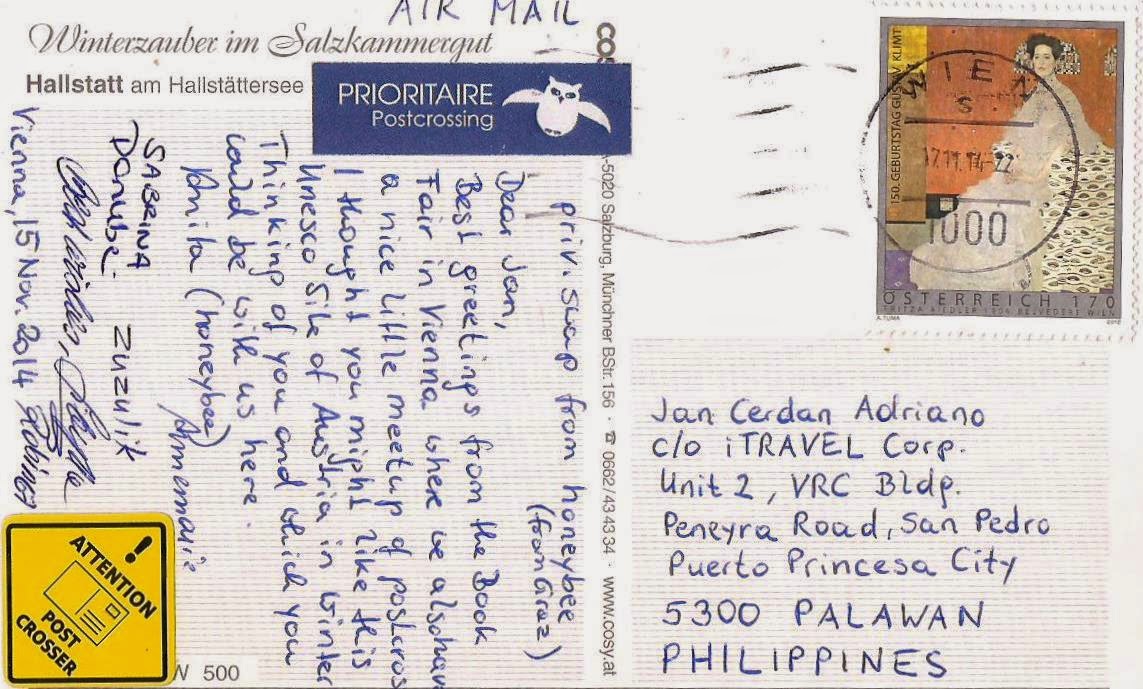 AIR MAIL
Winterzauber im Salzkammergut
Hallstatt am Hallstättersee
PRIORITAIRE
Postcrossing
priv. swap from honeybee
(from Graz)
Dear Jan,
Best greetings from the Book
Fair in Vienna where we also have
a nice little meetup of postcros
I thought you might like this
Unesco Site of Austria in winter
Thinking of you and which you
could be with us here.
Anita (honeybee)
Annemarie
SABRINA
Donube-
ZUZULIK
Vienna, 15 Nov. 2014
ATTENTION
!
POST
CROSSER
W 500
A-5020 Salzburg, Münchner BStr. 156 · ☎ 0662/43 43 34 · www.cosy.at
WIEN
S
17.11.14-22
1000
150. GEBURTSTAG GUSTAV KLIMT
ÖSTERREICH 170
FRITZA RIEDLER 1906 BELVEDERE WIEN
A.TUMA
2012
Jan Cerdan Adriano
c/o iTRAVEL Corp.
Unit 2, VRC Bldg.
Peneyra Road, San Pedro
Puerto Princesa City
5300 PALAWAN
PHILIPPINES